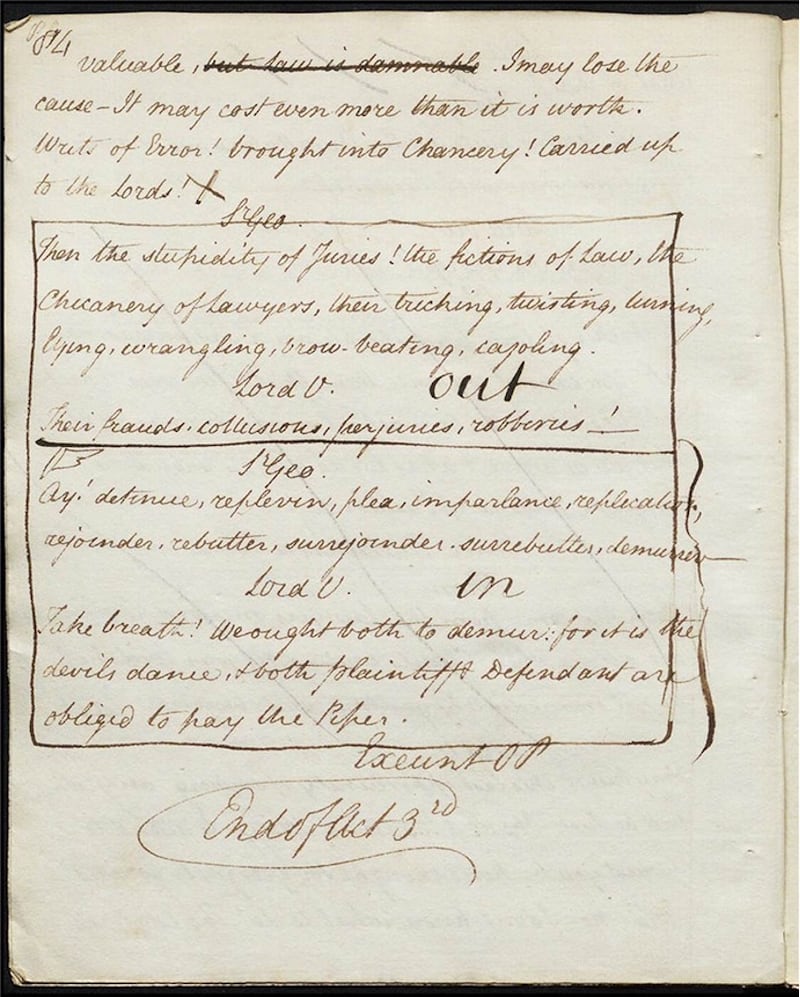 84
valuable, but Law is damnable. I may lose the
cause – It may cost even more than it is worth.
Writs of Error! brought into Chancery! Carried up
to the Lords!
Sr Geo.
Then the stupidity of Juries! the fictions of Law, the
Chicanery of Lawyers, their tricking, twisting, turning,
lying, wrangling, brow-beating, cajoling.
Lord V. out
Their frauds, collusions, perjuries, robberies –!
Sr Geo.
Ay! detinue, replevin, plea, imparlance, replication,
rejoinder, rebutter, surrejoinder, surrebutter, demurrer –
Lord V. in
Take breath! We ought both to demur: for it is the
devils dance, & both plaintiff & Defendant are
obliged to pay the Piper.
Exeunt OP
End of Act 3rd